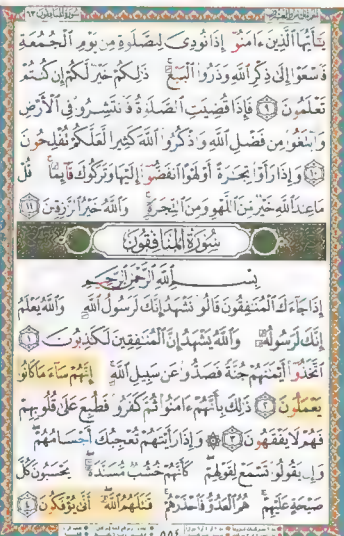 يَٰٓأَيُّهَا ٱلَّذِينَ ءَامَنُوٓا۟ إِذَا نُودِىَ لِلصَّلَوٰةِ مِن يَوْمِ ٱلْجُمُعَةِ
فَٱسْعَوْا۟ إِلَىٰ ذِكْرِ ٱللَّهِ وَذَرُوا۟ ٱلْبَيْعَ ۚ ذَٰلِكُمْ خَيْرٌ لَّكُمْ إِن كُنتُمْ
تَعْلَمُونَ ٩ فَإِذَا قُضِيَتِ ٱلصَّلَوٰةُ فَٱنتَشِرُوا۟ فِى ٱلْأَرْضِ
وَٱبْتَغُوا۟ مِن فَضْلِ ٱللَّهِ وَٱذْكُرُوا۟ ٱللَّهَ كَثِيرًا لَّعَلَّكُمْ تُفْلِحُونَ
١٠ وَإِذَا رَأَوْا۟ تِجَٰرَةً أَوْ لَهْوًا ٱنفَضُّوٓا۟ إِلَيْهَا وَتَرَكُوكَ قَآئِمًا ۚ قُلْ
مَا عِندَ ٱللَّهِ خَيْرٌ مِّنَ ٱللَّهْوِ وَمِنَ ٱلتِّجَٰرَةِ ۚ وَٱللَّهُ خَيْرُ ٱلرَّٰزِقِينَ ١١
سُورَةُ الْمُنَافِقُونَ
بِسْمِ ٱللَّهِ ٱلرَّحْمَٰنِ ٱلرَّحِيمِ
إِذَا جَآءَكَ ٱلْمُنَٰفِقُونَ قَالُوا۟ نَشْهَدُ إِنَّكَ لَرَسُولُ ٱللَّهِ ۗ وَٱللَّهُ يَعْلَمُ
إِنَّكَ لَرَسُولُهُۥ وَٱللَّهُ يَشْهَدُ إِنَّ ٱلْمُنَٰفِقِينَ لَكَٰذِبُونَ ١
ٱتَّخَذُوٓا۟ أَيْمَٰنَهُمْ جُنَّةً فَصَدُّوا۟ عَن سَبِيلِ ٱللَّهِ ۚ إِنَّهُمْ سَآءَ مَا كَانُوا۟
يَعْمَلُونَ ٢ ذَٰلِكَ بِأَنَّهُمْ ءَامَنُوا۟ ثُمَّ كَفَرُوا۟ فَطُبِعَ عَلَىٰ قُلُوبِهِمْ
فَهُمْ لَا يَفْقَهُونَ ٣ ۞ وَإِذَا رَأَيْتَهُمْ تُعْجِبُكَ أَجْسَامُهُمْ ۖ
وَإِن يَقُولُوا۟ تَسْمَعْ لِقَوْلِهِمْ ۖ كَأَنَّهُمْ خُشُبٌ مُّسَنَّدَةٌ ۖ يَحْسَبُونَ كُلَّ
صَيْحَةٍ عَلَيْهِمْ ۚ هُمُ ٱلْعَدُوُّ فَٱحْذَرْهُمْ ۚ قَٰتَلَهُمُ ٱللَّهُ ۖ أَنَّىٰ يُؤْفَكُونَ ٤
٥٥٤